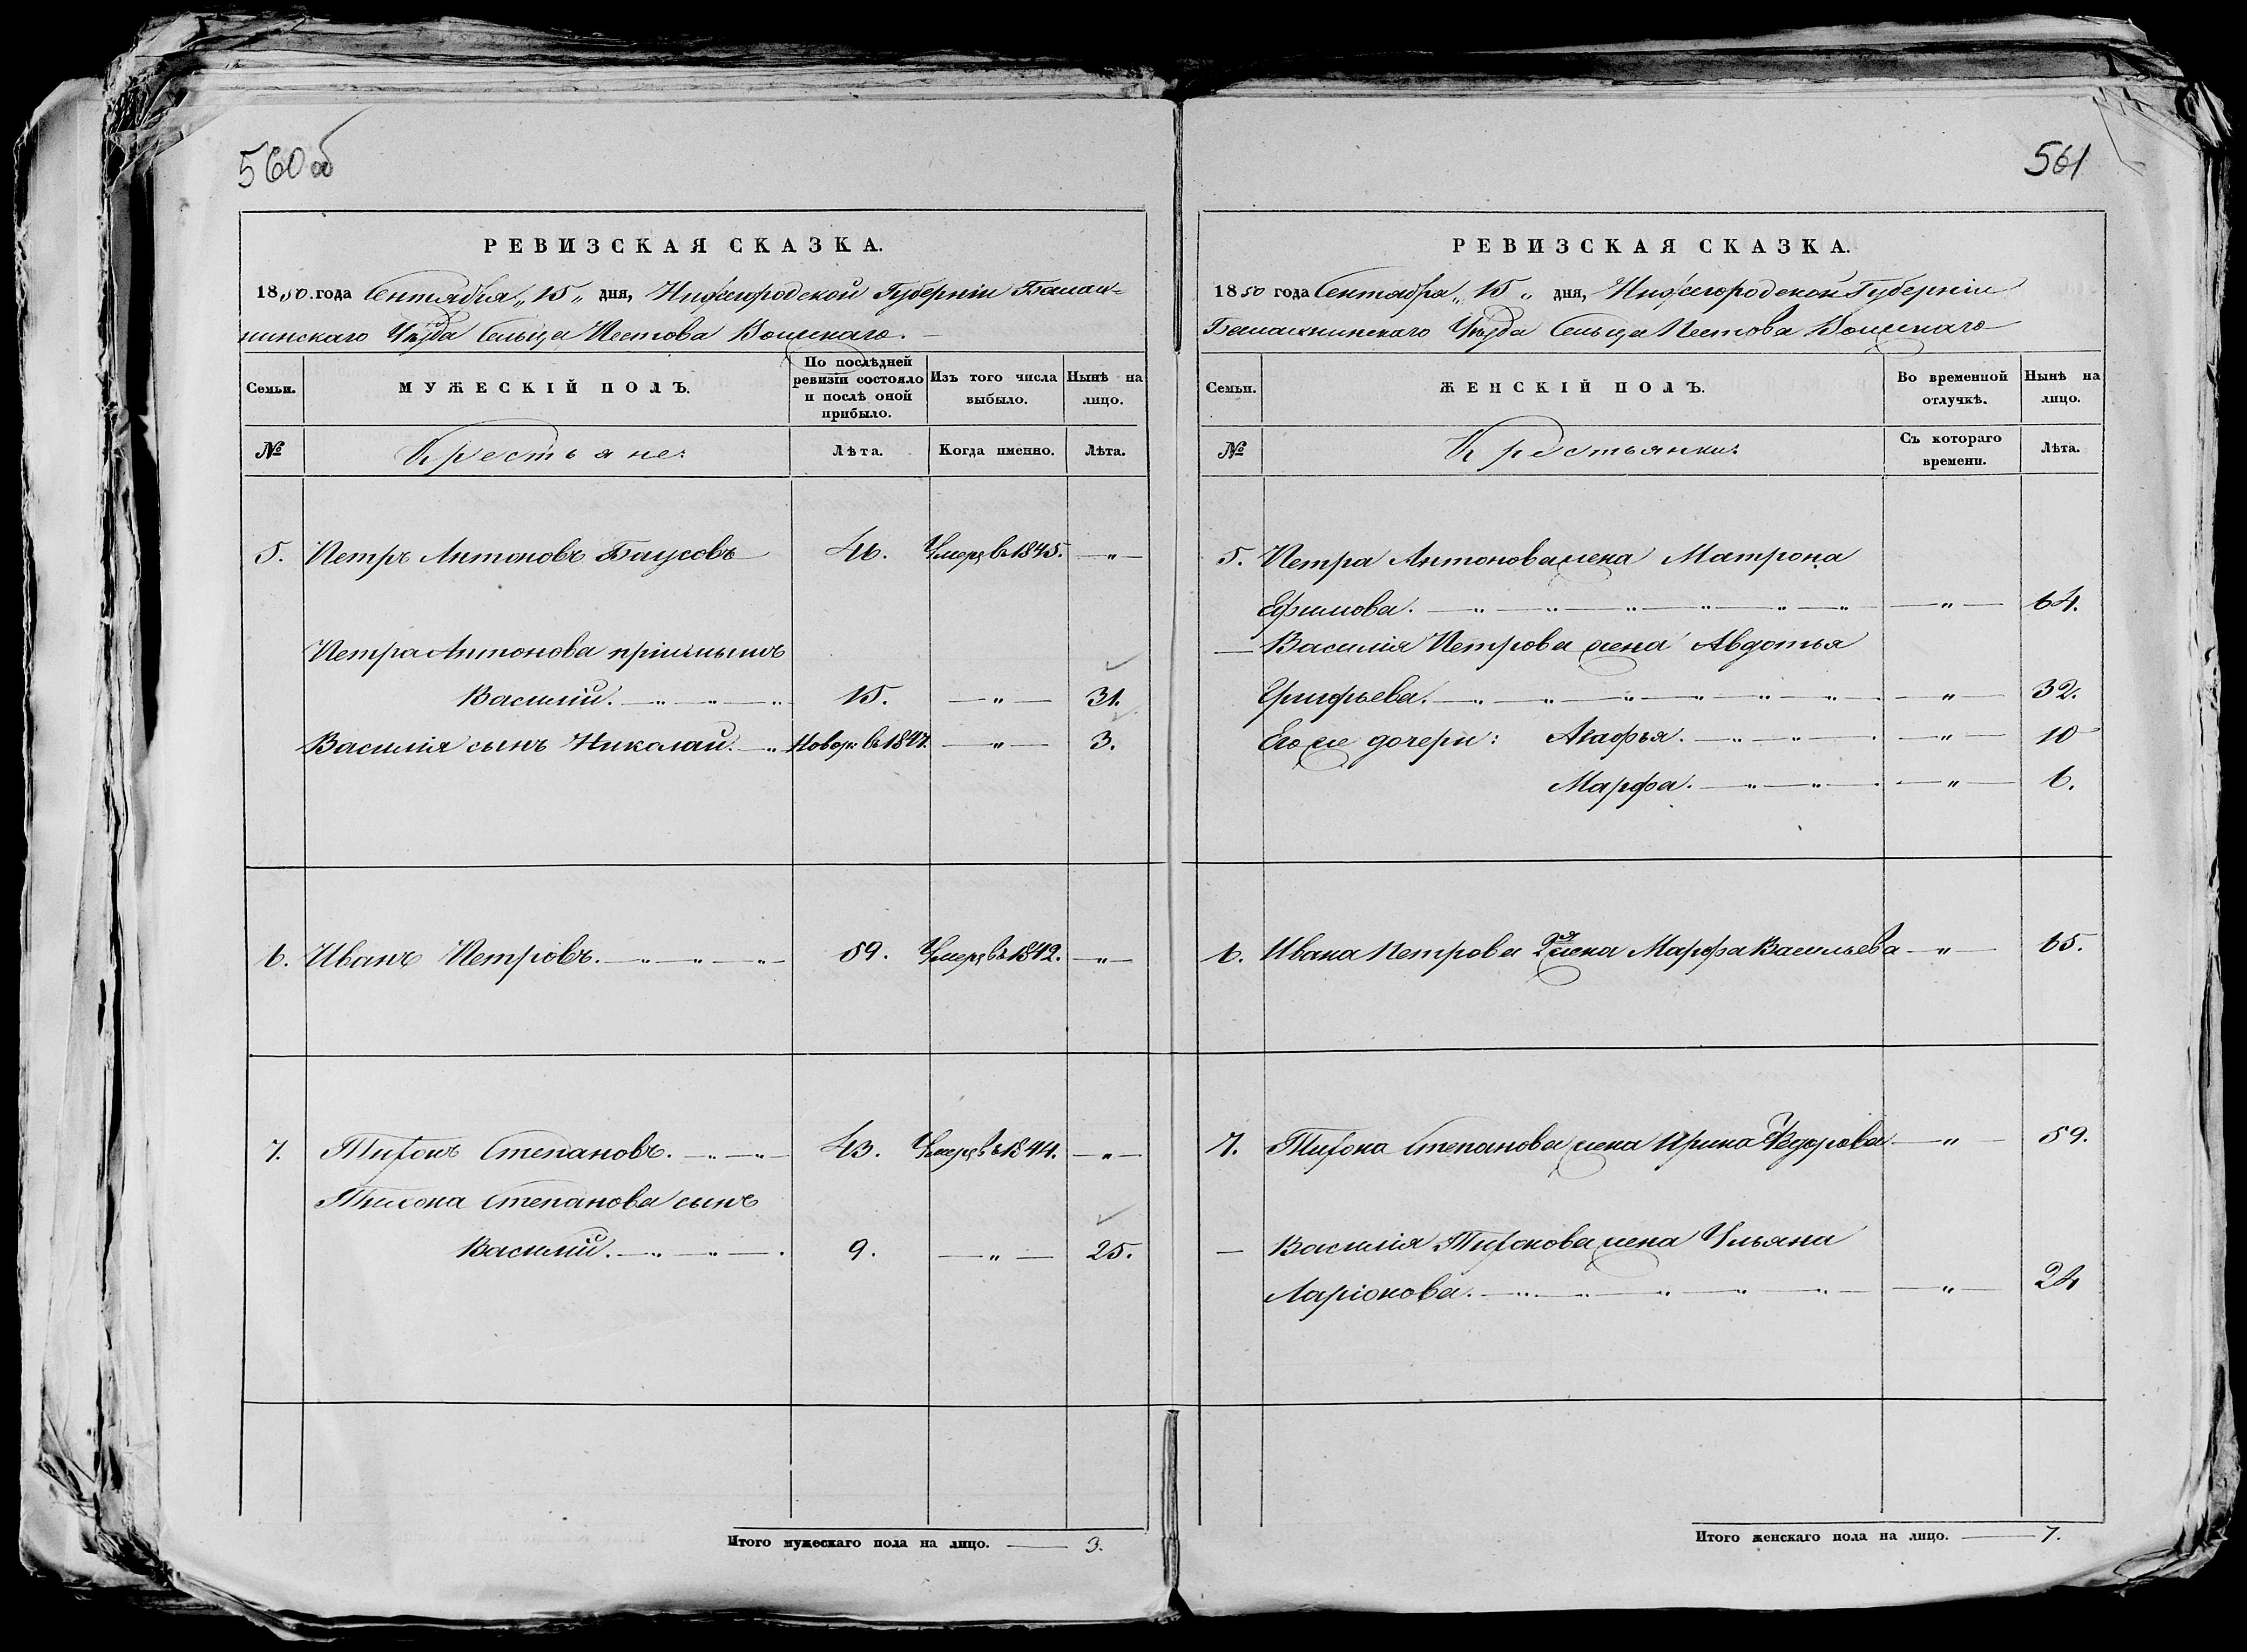 560 об
РЕВИЗСКАЯ СКАЗКА.
1850. года Сентября „15„ дня, Нижегородской Губерніи Балах-
нинскаго Уѣзда Сельца Пестова
Семьи.
МУЖЕСКІЙ ПОЛЪ.
По послѣдней ревизіи состояло и послѣ оной прибыло.
Изъ того числа выбыло.
Нынѣ на лицо.
№
Крестьяне:
Лѣта.
Когда именно.
Лѣта.
5. Петръ Антоновъ Баусовъ 46. Умеръ въ 1845. — „ —
Петра Антонова пріимышъ
Василій. — „ — „ — „ 15. — „ — 31.
Василія сынъ Николай. — „ Новор: въ 1847. — „ — 3.
6. Иванъ Петровъ. — „ — „ — „ 59. Умеръ въ 1842. — „ —
7. Тихонъ Степановъ. — „ — „ 43. Умеръ въ 1844. — „ —
Тихона Степанова сынъ
Василій. — „ — „ — . 9. — „ — 25.
Итого мужескаго пола на лицо. — 3.
561
РЕВИЗСКАЯ СКАЗКА.
1850 года Сентября „ 15 „ дня, Нижегородской Губерніи
Балахнинскаго Уѣзда Сельца Пестова
Семьи.
ЖЕНСКІЙ ПОЛЪ.
Во временной отлучкѣ.
Нынѣ на лицо.
№
Крестьянки:
Съ котораго времени.
Лѣта.
5. Петра Антонова жена Матрона
Ефимова. — „ — „ — „ — „ — „ — „ — „ — 64.
— Василія Петрова жена Авдотья
Григорьева. — „ — „ — „ — „ — „ — „ — „ — 32.
Его же дочери: Агафья. — „ — „ — . — „ — 10
Марфа. — „ — „ — . — „ — 6.
6. Ивана Петрова 2я жена Марфа Васильева — „ — 65.
7. Тихона Степанова жена Ирина Ѳедорова — „ — 59.
— Василія Тихонова жена Ульяна
Ларіонова. — „ — „ — „ — „ — „ — — „ — 24
Итого женскаго пола на лицо. — 7.